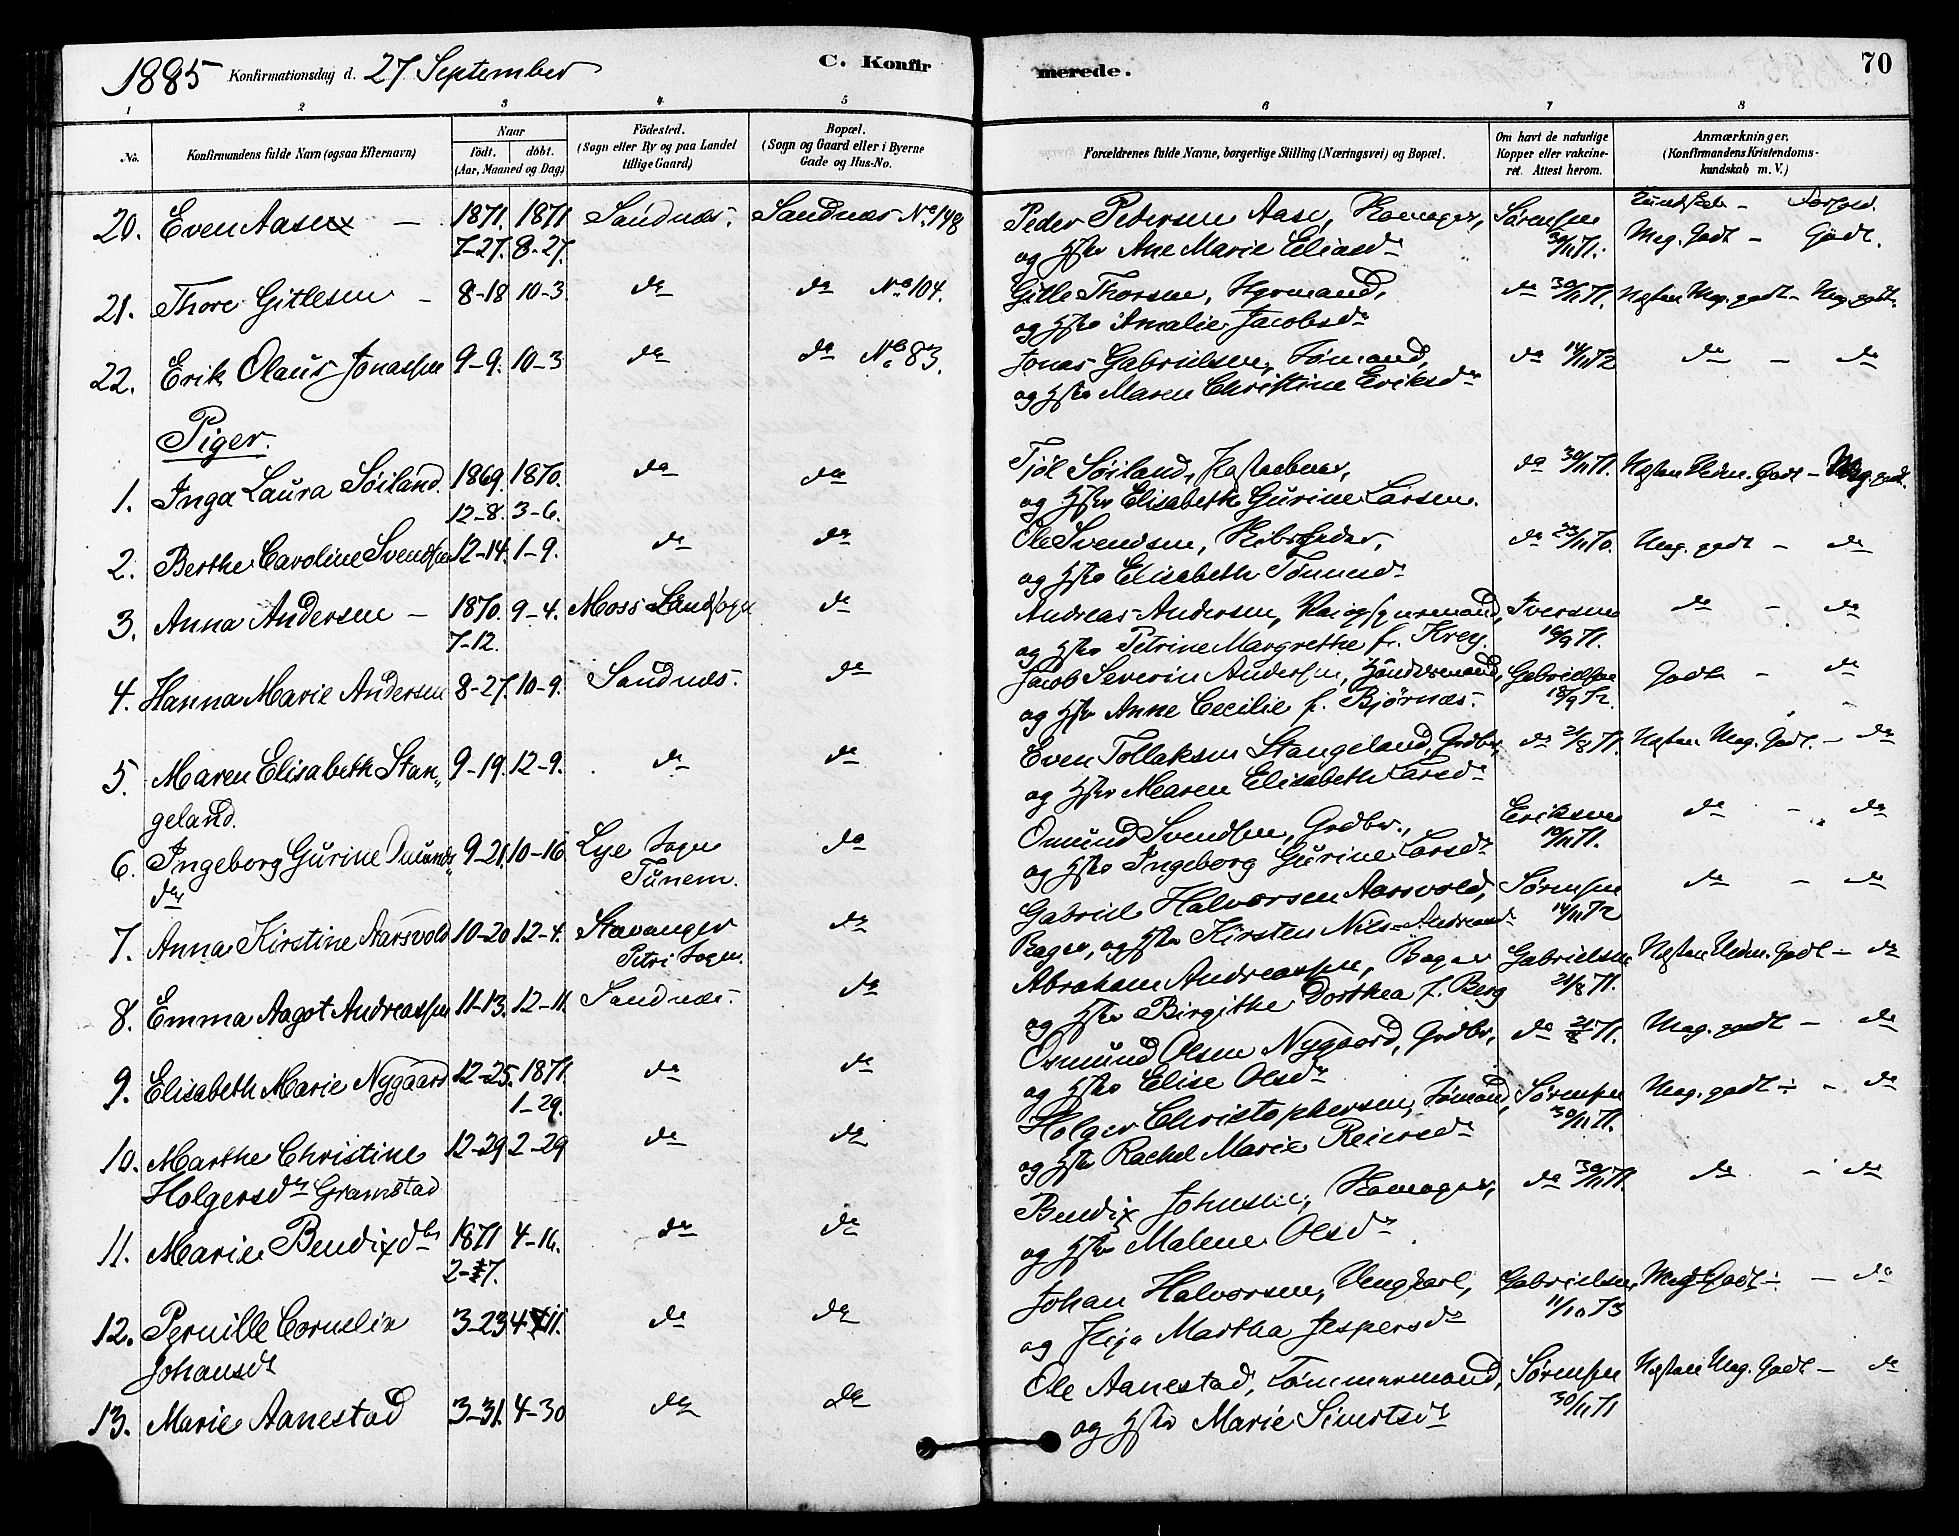 1885 Konfirmationsdag d. 27 September C. Konfirmerede. 70
1 2 3 4 5 6 7 8
No. Konfirmandens fulde Navn (ogsaa Efternavn) Naar födt. döbt. (Aar, Maaned og Dag) Födested. (Sogn eller By og paa Landet tillige Gaard) Bopæl. (Sogn og Gaard eller i Byerne Gade og Hus-No. Forældrenes fulde Navne, borgerlige Stilling (Næringsvei) og Bopæl. Om havt de naturlige Kopper eller vakcineret. Attest herom. Anmærkninger. (Konfirmandens Kristendomskundskab m. V.)
20. Even Aasen – 1871. 1871 Sandnæs. Sandnæs No 148 Peder Pedersen Aase, Sørensen Kundskab –
7–27. 8–27. og Hstr Ane Marie Eliasdr 30/11 71. Meg. Godt – Godt.
21. Thore Gitlesen – 8–18 10–3. do do No 104. Gitle Thorsen, do 30/11 71. Næsten Meg. godt – Meg. godt.
og Hstr Amalie Jacobsdr
22. Erik Olaus Jonassen 9–9. 10–3 do do No 83. Jonas Gabrielsen, Sømand, do 14/11 72 do – do
og Hstr Maren Christine Eriksdr
Piger.
1. Inga Laura Söiland. 1869. 1870. do do Tjöl Söiland, do 30/11 71. Næsten Udm. Godt – Meg. godt.
12–8. 3–6. og Hstr Elisabeth Gurine Larsen.
2. Berthe Caroline Svendsen 12–14. 1–9. do do Ole Svendsen, do Meg. godt – do
og Hstr Elisabeth Tønnesdr
3. Anna Andersen – 1870. 9–4. Moss Landsogn do Andreas Andersen, Iversen do – do
7–12. og Hstr Petrine Margrethe f. Krey. 19/9 71.
4. Hanna Marie Andersen 8–27. 10–9. Sandnæs. do Jacob Severin Andersen, Gabrielsen Godt – do
og Hstr Anne Cecilie f. Bjørnæs. 18/9 72.
5. Maren Elisabeth Stan- 9–19. 12–9. do do Even Tollaksen Stangeland, Grdbr, do 21/8 71. Næsten Meg. Godt. – do
geland. og Hstr Maren Elisabeth Larsdr
6. Ingeborg Gurine Omunds- 9–21. 10–16 Lye Sogn do Omund Svendsen, Grdbr., Eriksen do – do
dr Tunem. og Hstr Ingeborg Gurine Larsdr 19/11 71.
7. Anna Kirstine Aarsvold 10–20 12–4. Stavanger do Gabriel Halvorsen Aarsvold, Sørensen do – do
Petri Sogn. Bager, og Hstr Kirsten Nils-Andreasdr 14/11 72
8. Emma Aagot Andreassen 11–13. 12–11. Sandnæs. do Abraham Andreassen, Bager Gabrielsen Næsten Udm. Godt – do
og Hstr Birgithe Dorthea f. Berg 21/8 71.
9. Elisabeth Marie Nygaard 12–25. 1871. do do Osmund Olsen Nygaard, Grdbr, do 21/8 71. Meg. godt – do
1–29. og Hstr Elise Olsdr
10. Marthe Christine 12–29 2–29 do do Holger Christophersen, Sømand, Sørensen Meg. godt – do
Holgersdr Gramstad og Hstr Rachel Marie Reiersdr 30/11 71.
11. Marie Bendixdtr 1871 4–16. do do Bendix Johnsen, do 30/11 71. do – do
2–17. og Hstr Malene Olsdr
12. Pernille Cornelia 3–23 4–11. do do Johan Halvorsen, Ungkarl, Gabrielsen Meg. Godt – do
Johansdr og Pige Martha Jespersdr 11/10 73
13. Marie Aanestad 3–31. 4–30 do do Ole Aanestad, Tømmermand, Sørensen Næsten Meg. Godt – do
og Hstr Marie Simetsdr 30/11 71